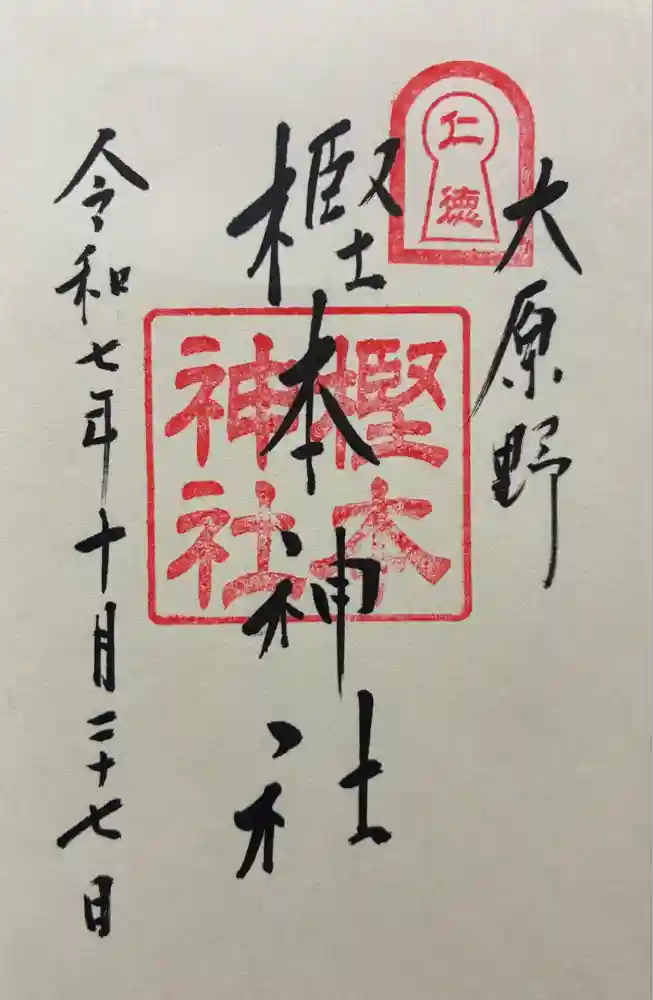 大原野
仁
徳
樫本神社
樫本
神社
令和七年十月二十七日